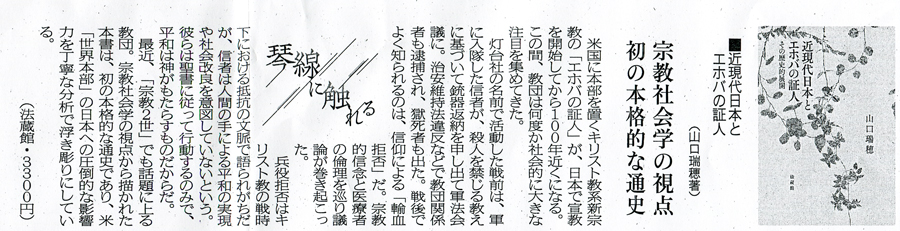 近現代日本と
エホバの証人
その歴史的展開
山口瑞穂
法藏館
■近現代日本と
エホバの証人
(山口瑞穂著)
宗教社会学の視点
初の本格的な通史
米国に本部を置くキリスト教系新宗
教の「エホバの証人」が、日本で宣教
を開始してから100年近くになる。
この間、教団は何度か社会的に大きな
注目を集めてきた。
灯台社の名前で活動した戦前は、軍
に入隊した信者が、殺人を禁じる教え
に基づいて銃器返納を申し出て軍法会
議に。治安維持法違反などで教団関係
者も逮捕され、獄死者も出た。戦後で
よく知られるのは、信仰による「輸血
拒否」だ。宗教
的信念と医療者
の倫理を巡り議
論が巻き起こっ
た。
兵役拒否はキ
リスト教の戦時
琴線に触れる
下における抵抗の文脈で語られがちだ
が、信者は人間の手による平和の実現
や社会改良を意図していないという。
彼らは聖書に従って行動するのみで、
平和は神がもたらすものだからだ。
最近、「宗教2世」でも話題に上る
教団。宗教社会学の視点から描かれた
本書は、初の本格的な通史であり、米
「世界本部」の日本への圧倒的な影響
力を丁寧な分析で浮き彫りにしてい
る。
(法蔵館・3300円)